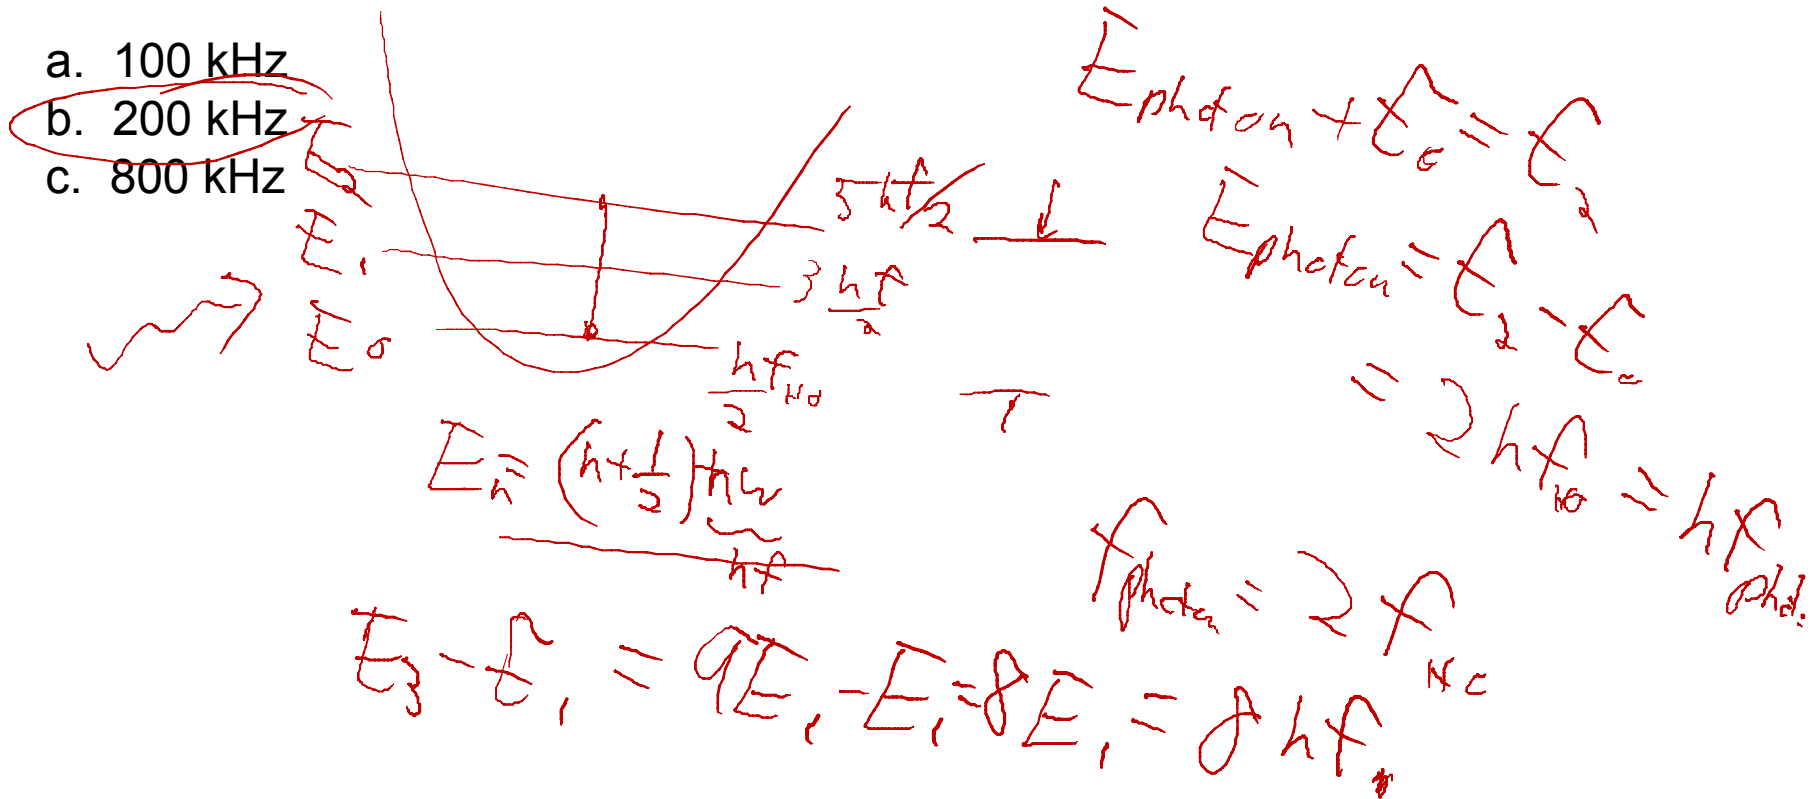 a. 100 kHz
b. 200 kHz
c. 800 kHz
E₂
E₁
E₀
5hf/2
3hf/2
hf_HO/2
E_n = (n+1/2)ħω
hf
E_photon + E₀ = E₂
E_photon = E₂ - E₀
= 2hf_HO = hf_phot.
f_photon = 2f_HO
E₃ - E₁ = 9E₁ - E₁ = 8E₁ = 8hf₁